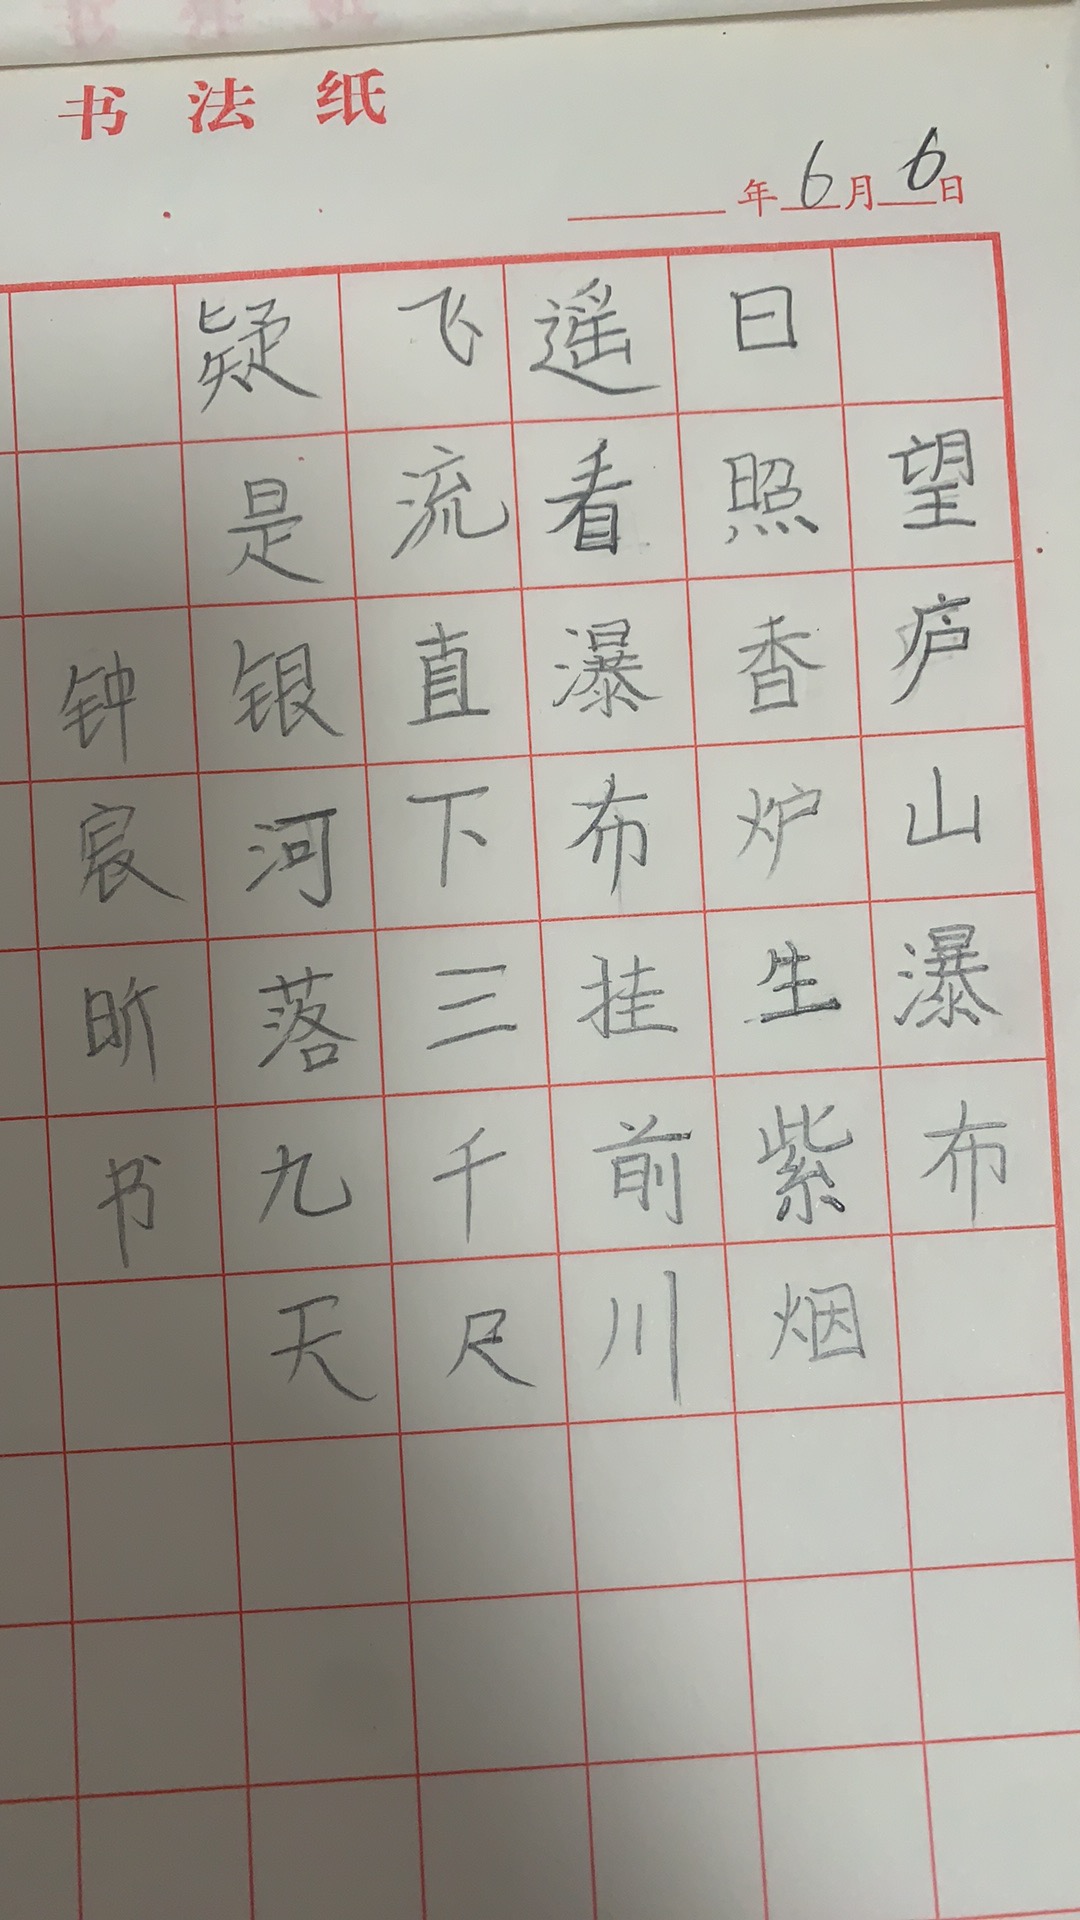 书法纸
年6月6日
望庐山瀑布
日照香炉生紫烟
遥看瀑布挂前川
飞流直下三千尺
疑是银河落九天
钟宸昕书